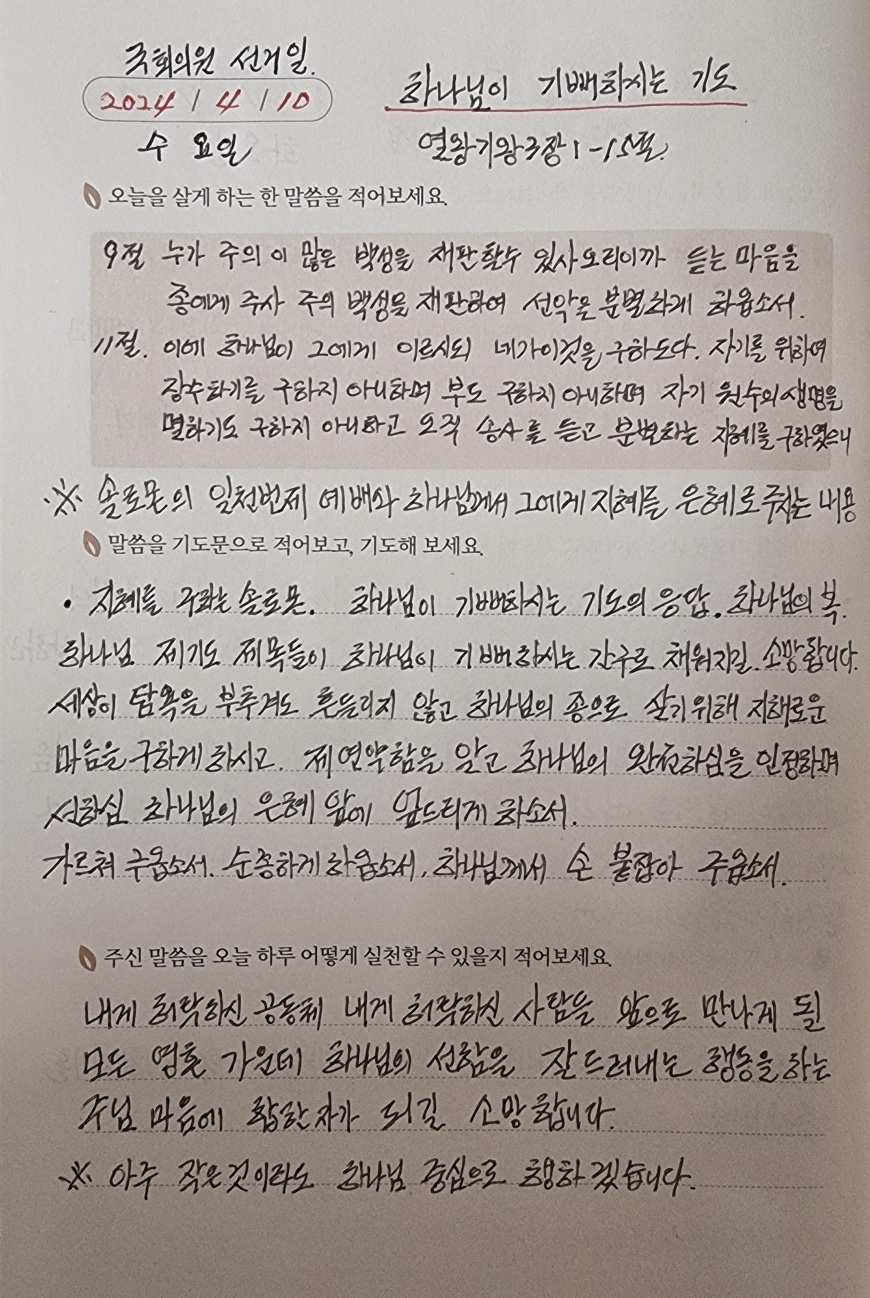 국회의원 선거일.
2024 / 4 / 10
하나님이 기뻐하시는 기도
수 요일
열왕기왕 3장 1-15절.
오늘을 살게 하는 한 말씀을 적어보세요.
9절 누가 주의 이 많은 백성을 재판 할수 있사오리이까 듣는 마음을
종에게 주사 주의 백성을 재판하여 선악을 분별하게 하옵소서.
11절. 이에 하나님이 그에게 이르시되 네가 이것을 구하도다. 자기를 위하여
장수하기를 구하지 아니하며 부도 구하지 아니하며 자기 원수의 생명을
멸하기도 구하지 아니하고 오직 송사를 듣고 분별하는 지혜를 구하였으니
※ 솔로몬의 일천번제 예배와 하나님께서 그에게 지혜를 은혜로 주시는 내용
말씀을 기도문으로 적어보고, 기도해 보세요.
• 지혜를 구하는 솔로몬. 하나님이 기뻐하시는 기도의 응답. 하나님의 복.
하나님 제기도 제목들이 하나님이 기뻐하시는 간구로 채워지길 소망합니다.
세상이 탐욕을 부추겨도 흔들리지 않고 하나님의 종으로 살기위해 지혜로운
마음을 구하게 하시고. 제 연약함을 알고 하나님의 완전하심을 인정하며
선하심 하나님의 은혜 앞에 엎드리게 하소서.
가르쳐 주옵소서. 순종하게 하옵소서. 하나님께서 손 붙잡아 주옵소서.
주신 말씀을 오늘 하루 어떻게 실천할 수 있을지 적어보세요.
내게 허락하신 공동체 내게 허락하신 사람들 앞으로 만나게 될
모든 영혼 가운데 하나님의 선함을 잘 드러내는 행동을 하는
주님 마음에 합한 자가 되길 소망합니다.
※ 아주 작은것이라도 하나님 중심으로 행하겠습니다.